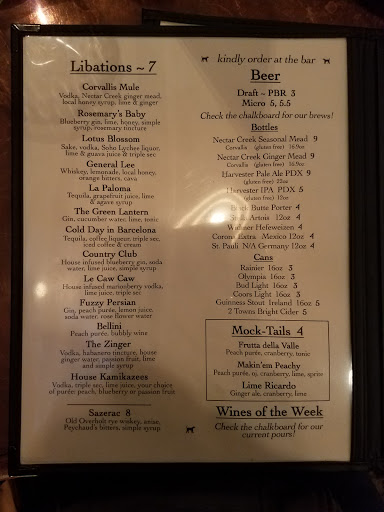 Libations ~ 7
Corvallis Mule
Vodka, Nectar Creek ginger mead,
local honey syrup, lime & ginger
Rosemary's Baby
Blueberry gin, lime, honey, simple
syrup, rosemary tincture
Lotus Blossom
Sake, vodka, Soho Lychee liquor,
lime & guava juice & triple sec
General Lee
Whiskey, lemonade, local honey,
orange bitters, cava
La Paloma
Tequila, grapefruit juice, lime
& agave syrup
The Green Lantern
Gin, cucumber water, lime, tonic
Cold Day in Barcelona
Tequila, coffee liqueur, triple sec,
iced coffee & cream
Country Club
House infused blueberry gin, soda
water, lime juice, simple syrup
Le Caw Caw
House infused marionberry vodka,
lime juice, triple sec
Fuzzy Persian
Gin, peach purée, lemon juice,
soda water, rose flower water
Bellini
Peach purée, bubbly wins
The Zinger
Vodka, habanero tincture, house
ginger water, passion fruit, lime
and simple syrup
House Kamikazees
Vodka, triple sec, lime juice, your choice
of purée: peach, blueberry or passion fruit
Sazerac 8
Old Overholt rye wiskey,
Peychaud's bitters, simple syrup
kindly order at the bar
Beer
Draft ~ PBR 3
Micro 5, 5.5
Check the chalkboard for our brews!
Bottles
Nectar Creek Seasonal Mead 9
Corvallis (gluten free) 16.9oz
Nectar Creek Ginger Mead 9
Corvallis (gluten free) 16.9oz
Harvester Pale Ale PDX 9
(gluten free) 22oz
Harvester IPA PDX 5
(gluten free) 12oz
Black Butte Porter 4
Stella Artois 12oz 4
Widmer Hefeweizen 4
Corona Extra Mexico 12oz 4
St. Pauli N/A Germany 12oz 4
Cans
Rainier 16oz 3
Olympia 16oz 3
Bud Light 16oz 3
Coors Light 16oz 3
Guinness Stout Ireland 16oz 5
2 Towns Bright Cider 5
Mock-Tails 4
Frutta della Valle
Peach purée, cranberry, tonic
Makin'em Peachy
Peach purée, oj, cranberry, lime, sprite
Lime Ricardo
Ginger ale, cranberry, lime
Wines of the Week
Check the chalkboard for our
current pours!